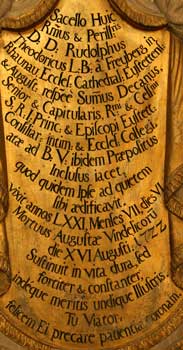 Sacello Huic
D. D. Rudolphus
Theodoricus L: B: à Freyberg in
Eccles: Cathedral:
August: Sumus Decanus,
Senior & Capitularis,
S: R: I: Princ: & Episcopi Eystett:
Consiliar: intim: & Eccles: Colleg:
atæ ad B. V. ibidem Præpositus
Inclusus iacet,
quod quidem Ipse ad quietem
sibi ædificavit,
vixit annos LXXI, Menses VII, dies VI
Mortuus Augustæ Vindelicorū
die XVI Augusti,
Sustinuit in vita dura, sed
fortiter & constanter,
indeque meritis undique Illustris,
Tu Viator,
felicem Ei precare patientiæ coronam.